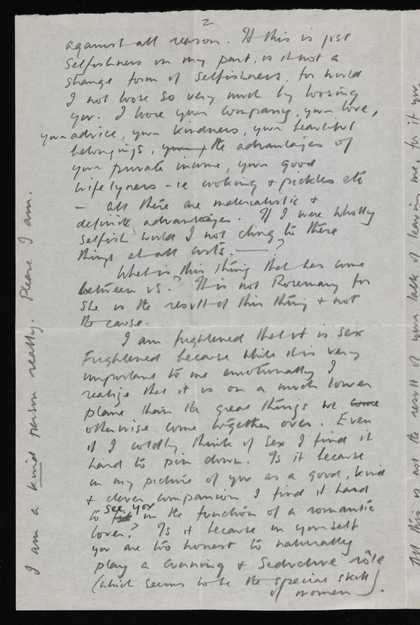 2
against all reason. If this is just
selfishness on my part, is it not a
strange form of selfishness, for would
I not lose so very much by loosing
you. I lose your company, your love,
your advice, your kindness, your beautiful
belongings, the advantages of
your private income, your good
wifelyness - ie cooking & pickles etc
- all these are materialistic &
definite advantages. If I were wholly
selfish would I not cling to these
things at all costs.
What is this thing that has come
between us? This is not Rosemary for
she is the result of this thing & not
the cause.
I am frightened that it is sex
frightened because while it is very
important to me emotionally I
realize that it is on a much lower
plane than the great things we come
otherwise come together over. Even
if I coldly think of sex I find it
hard to pin down. Is it because
in my picture of you as a good, kind
& clever companion I find it hard
to see you in the function of a romantic
lover? Is it because in yourself
you are too honest to naturally
play a cunning & seductive rôle
(which seems to be the special skill
of women).
I am a kind person really. Please I am.
not the result of your talk of leaving me, for if you